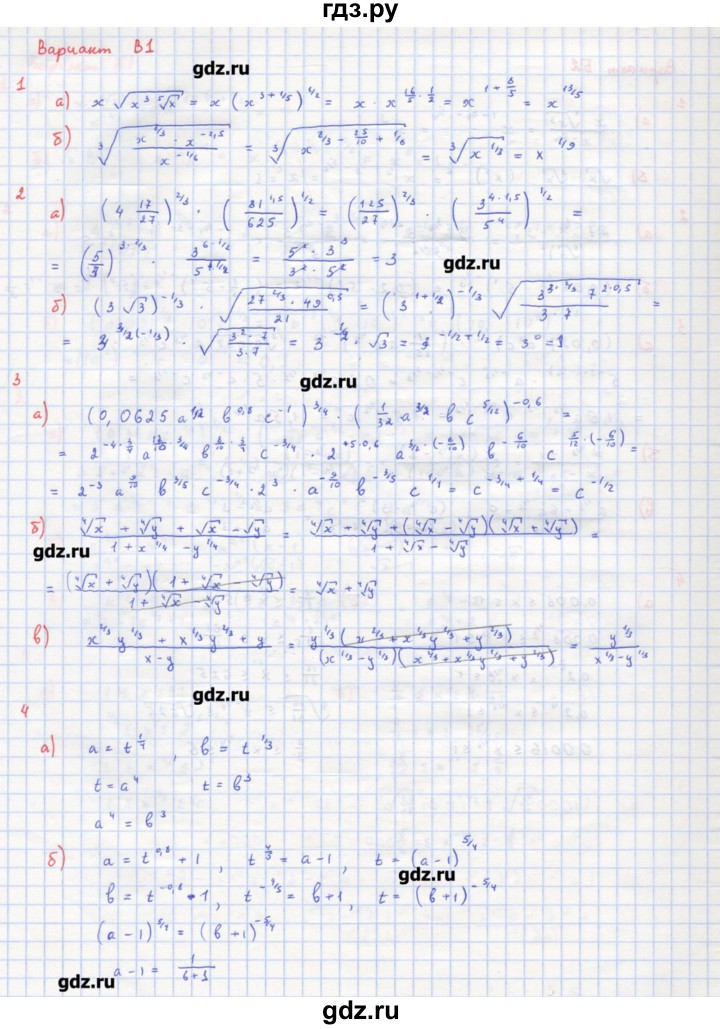 гдз.ру
Вариант В1
gdz.ru
1
а) x √(x³ ⁵√x) = x (x^(3+1/5))^(1/2) = x · x^(16/5 · 1/2) = x^(1+8/5) = x^(13/5)
б) ³√(x^(2/3) · x^(-2,5) / x^(-1/6)) = ³√(x^(2/3 - 25/10 + 1/6)) = ³√(x^(1/3)) = x^(1/9)
2
а) (4 17/27)^(2/3) · (81^(1,5)/625)^(1/2) = (125/27)^(2/3) · (3^(4·1,5)/5⁴)^(1/2) =
= (5/3)^(3·2/3) · 3^(6·1/2)/5^(4·1/2) = 5² · 3³/3² · 5² = 3
gdz.ru
б) (3√3)^(-1/3) · √(27^(2/3) · 49^(0,5)/21) = (3^(1+1/2))^(-1/3) √(3^(3·2/3) · 7^(2·0,5)/3·7) =
= 3^(3/2(-1/3)) · √(3²·7/3·7) = 3^(-1/2) · √3 = 3^(-1/2+1/2) = 3⁰ = 1
gdz.ru
3
а) (0,0625 a^(1,2) b^(0,8) c^(-1))^(3/4) · (1/32 a^(3/2) b c^(5/12))^(-0,6) =
= 2^(-4·3/4) a^(12/10·3/4) b^(8/10·3/4) c^(-3/4) · 2^(+5·0,6) a^(3/2·(-6/10)) b^(-6/10) c^(5/12·(-6/10)) =
= 2^(-3) a^(9/10) b^(3/5) c^(-3/4) · 2³ · a^(-9/10) b^(-3/5) c^(1/1) = c^(-3/4+1/4) = c^(-1/2)
б) ⁴√x + ⁴√y + √x - √y / 1 + x^(1/4) - y^(1/4) = ⁴√x + ⁴√y + (⁴√x - ⁴√y)(⁴√x + ⁴√y) / 1 + ⁴√x - ⁴√y =
gdz.ru
= (⁴√x + ⁴√y)(1 + ⁴√x - ⁴√y) / 1 + ⁴√x - ⁴√y = ⁴√x + ⁴√y
в) x^(2/3) y^(1/3) + x^(1/3) y^(2/3) + y / x - y = y^(1/3) (x^(2/3) + x^(1/3) y^(1/3) + y^(2/3)) / (x^(1/3) - y^(1/3))(x^(2/3) + x^(1/3) y^(1/3) + y^(2/3)) = y^(1/3) / x^(1/3) - y^(1/3)
gdz.ru
4
а) a = t^(1/4), b = t^(1/3)
t = a⁴ t = b³
a⁴ = b³
б) a = t^(0,8) + 1, t^(4/5) = a - 1, t = (a-1)^(5/4)
gdz.ru
b = t^(-0,8) - 1, t^(-4/5) = b + 1, t = (b+1)^(-5/4)
(a-1)^(5/4) = (b+1)^(-5/4)
a - 1 = 1/b+1
gdz.ru
gdz.ru